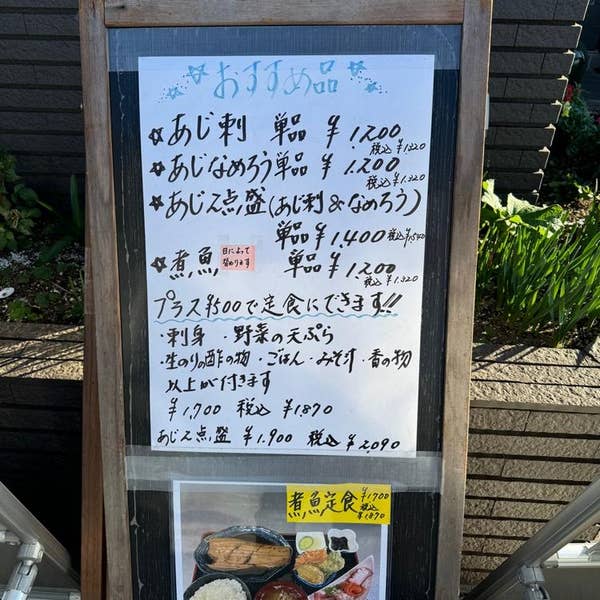 おすすめ品
☆あじ刺 単品 ¥1,200 税込¥1,320
☆あじなめろう単品 ¥1,200 税込¥1,320
☆あじ2点盛(あじ刺&なめろう)
単品¥1,400 税込¥1,540
☆煮魚 日によって変わります 単品¥1,200 税込¥1,320
プラス¥500で定食にできます!!
・刺身 ・野菜の天ぷら
・生のりの酢の物・ごはん・みそ汁・香の物
以上が付きます
¥1,700 税込 ¥1,870
あじ2点盛 ¥1,900 税込 ¥2,090
煮魚定食 ¥1,700 税込 ¥1,870